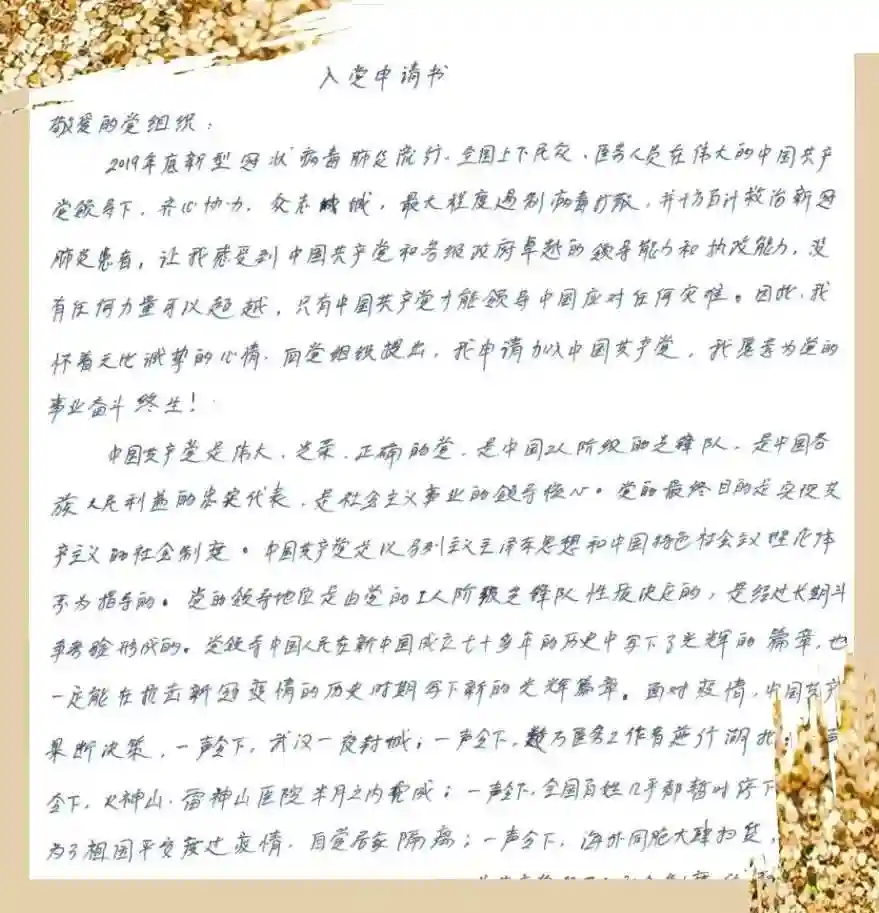 入党申请书
敬爱的党组织：
2019年底新型冠状病毒肺炎流行，全国上下民众、医务人员在伟大的中国共产
党领导下，齐心协力，众志成城，最大程度遏制病毒扩散，并千方百计救治新冠
肺炎患者，让我感受到中国共产党和各级政府卓越的领导能力和执政能力，没
有任何力量可以超越，只有中国共产党才能领导中国应对任何灾难。因此，我
怀着无比诚挚的心情，向党组织提出，我申请加入中国共产党，我愿意为党的
事业奋斗终生！
中国共产党是伟大、光荣、正确的党，是中国工人阶级的先锋队，是中国各
族人民利益的忠实代表，是社会主义事业的领导核心。党的最终目的是实现共
产主义的社会制度。中国共产党是以马列主义毛泽东思想和中国特色社会主义理论体
系为指导的。党的领导地位是由党的工人阶级先锋队性质决定的，是经过长期斗
争考验形成的。党领导中国人民在新中国成立七十多年的历史中写下了光辉的篇章，也
一定能在抗击新冠疫情的历史时期写下新的光辉篇章。面对疫情，中国共产
果断决策，一声令下，武汉一夜封城；一声令下，数万医务工作者逆行湖北；
令下，火神山、雷神山医院半月之内建成；一声令下，全国百姓几乎都暂时停下
为了祖国平安度过疫情，自觉居家隔离；一声令下，海外同胞大肆扫货，